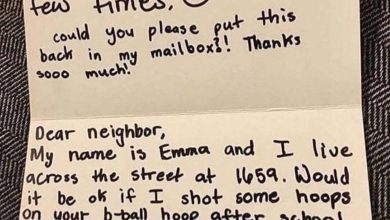 few times.
could you please put this
back in my mailbox?! Thanks
sooo much!
Dear neighbor,
My name is Emma and I live
across the street at 1659. Would
it be ok if I shot some hoops
on your b-ball hoop after school